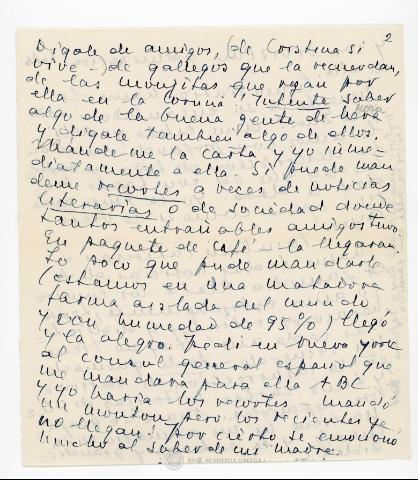 2
Digale de amigos, (de Cristina si
vive - (de gallegos que la recuerdan,
de las monjitas que rezan por
ella en la Coruña. Intente saber
algo de la buena gente de Nova
y digale tambien algo de ellos.
Mándeme la carta y yo inme-
diatamente a ella. Si puede man
deme recortes a veces de noticias
literarias o de sociedad donde
tantos entrañables amigos tuvo.
En paquete de café la llegaran.
Lo poco que pude mandarle
(estamos en una matadora
farma aislada del mundo
y con humedad de 95%) llegó
y la alegro. Pedi en Nueva York
al consul general español que
me mandara para ella ABC
y yo haria los recortes mandó
un monton pero los recientes ya
no llegan! Por cierto se emocionó
mucho al saber de mi madre.
REAL ACADEMIA GALEGA